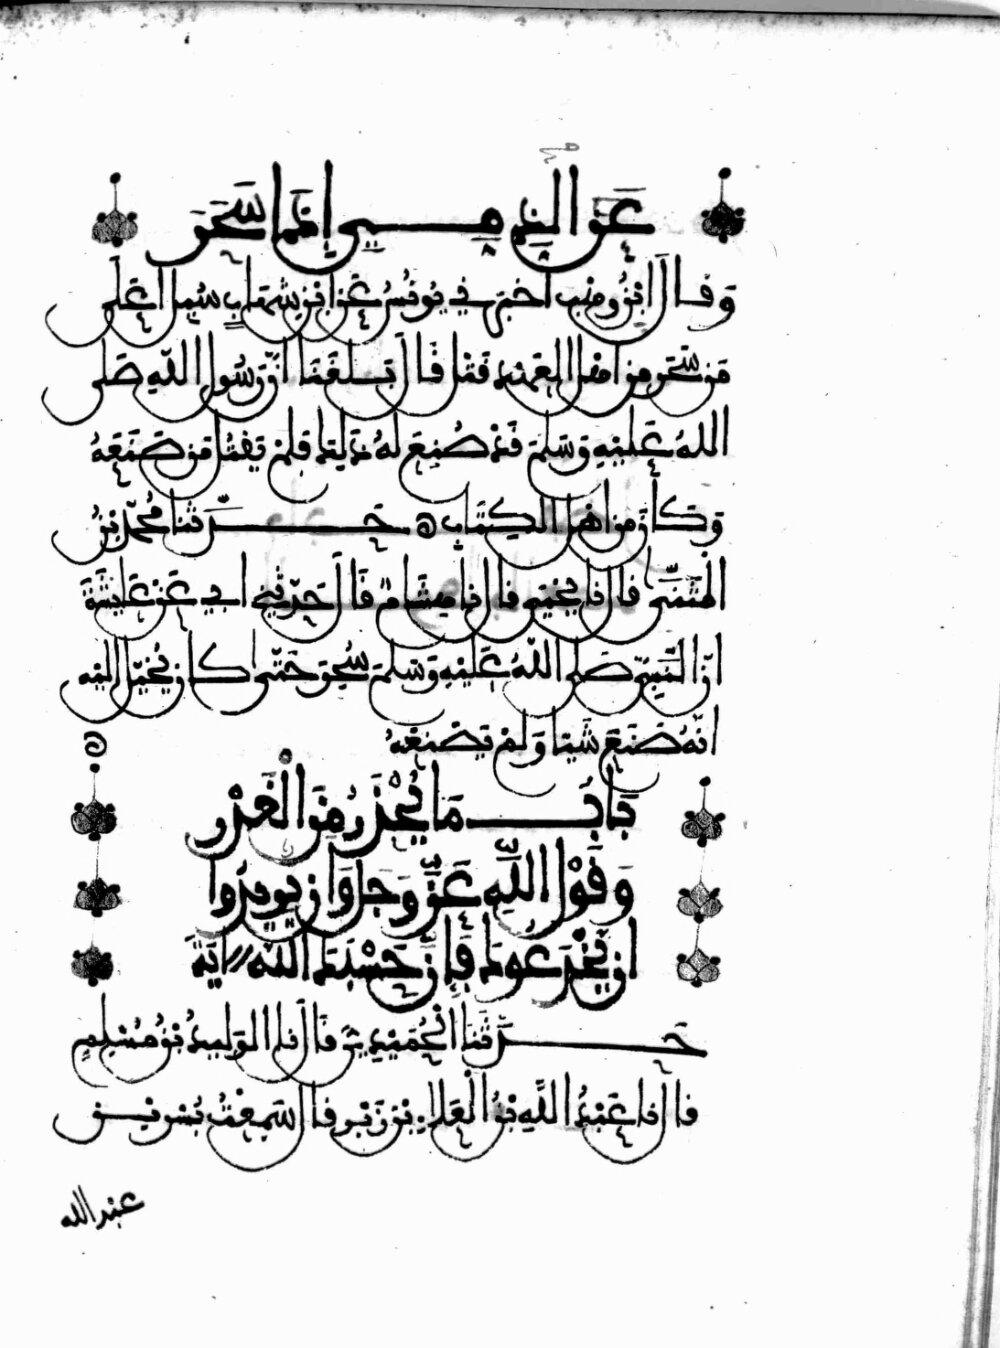 عَنِ الذِّمِّيِّ إِذَا سَحَرَ
وَقَالَ ابْنُ وَهْبٍ أَخْبَرَنِي يُونُسُ عَنِ ابْنِ شِهَابٍ سُئِلَ أَعَلَى
مَنْ سَحَرَ مِنْ أَهْلِ الْعَهْدِ قَتْلٌ قَالَ بَلَغَنَا أَنَّ رَسُولَ اللهِ صَلَّى
اللهُ عَلَيْهِ وَسَلَّمَ قَدْ صُنِعَ لَهُ ذَلِكَ فَلَمْ يَقْتُلْ مَنْ صَنَعَهُ
وَكَانَ مِنْ أَهْلِ الْكِتَابِ حَدَّثَنَا مُحَمَّدُ بْنُ
الْمُثَنَّى قَالَ نَا يَحْيَى قَالَ نَا هِشَامٌ قَالَ حَدَّثَنِي أَبِي عَنْ عَائِشَةَ
أَنَّ النَّبِيَّ صَلَّى اللهُ عَلَيْهِ وَسَلَّمَ سُحِرَ حَتَّى كَانَ يُخَيَّلُ إِلَيْهِ
أَنَّهُ صَنَعَ شَيْئًا وَلَمْ يَصْنَعْهُ
بَابُ مَا يُحْذَرُ مِنَ الْغَدْرِ
وَقَوْلِ اللهِ عَزَّ وَجَلَّ وَإِنْ يُرِيدُوا
أَنْ يَخْدَعُوكَ فَإِنَّ حَسْبَكَ اللهُ الْآيَةَ
حَدَّثَنَا الْحُمَيْدِيُّ قَالَ نَا الْوَلِيدُ بْنُ مُسْلِمٍ
قَالَ نَا عَبْدُ اللهِ بْنُ الْعَلَاءِ بْنِ زَبْرٍ قَالَ سَمِعْتُ بُسْرَ بْنَ
عبد الله